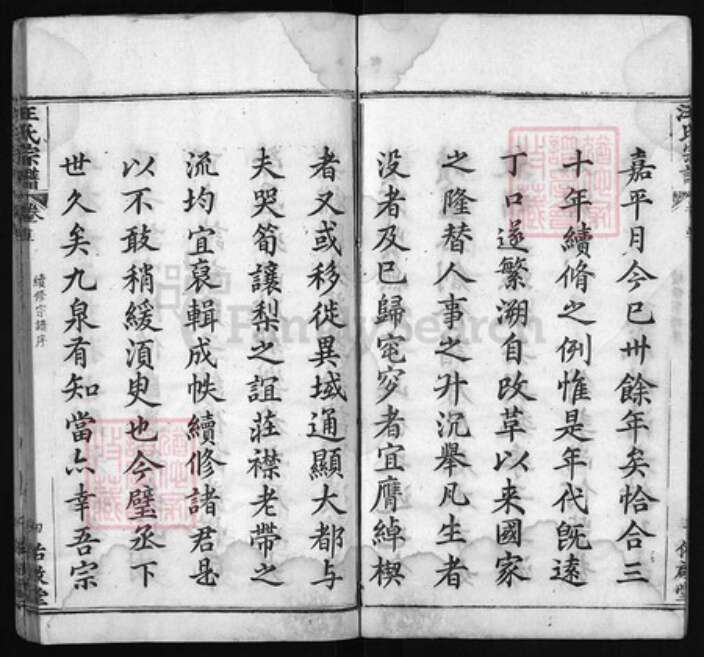 嘉平月今已卅餘年矣恰合三
十年續脩之例惟是年代既遠
丁口遂繁溯自改革以来國家
之隆替人事之升沉舉凡生者
没者及已歸窀穸者宜膺綽楔
者又或移徙異域通顯大都与
夫哭筍讓梨之誼莊襟老帶之
流均宜裒輯成帙續修諸君是
以不敢稍緩湏臾也今璧丞下
世久矣九泉有知當亦幸吾宗
汪氏宗譜
卷首
續修宗譜序
FamilySearch